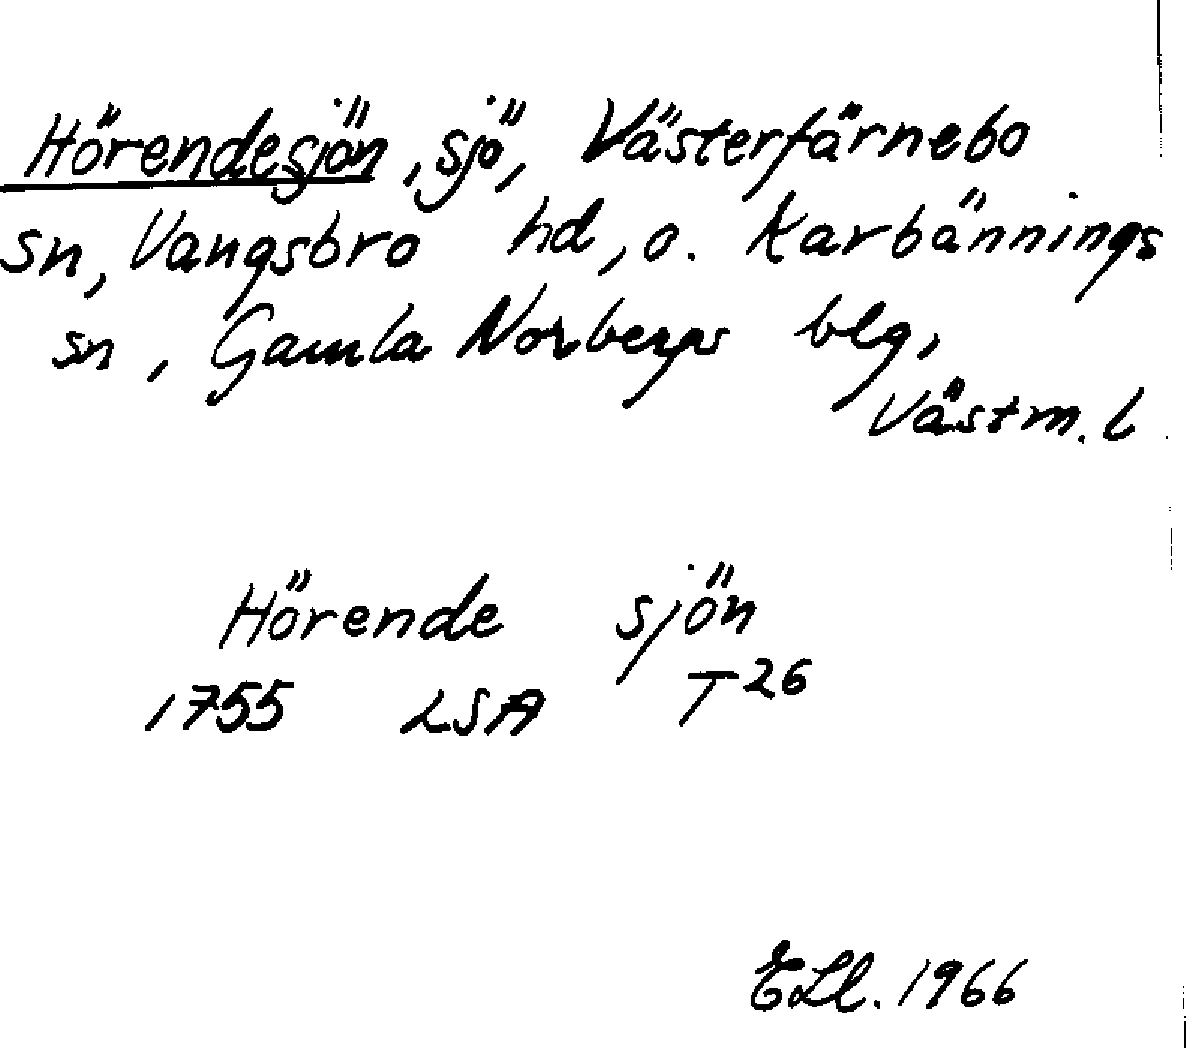 Hörendesjön, sjö, Västerfärnebo
sn, Vangsbro hd, o. Karbännings
sn, Gamla Norbergs blg,
Västm. l
Hörende sjön
1755 LSA T26
ELl. 1966